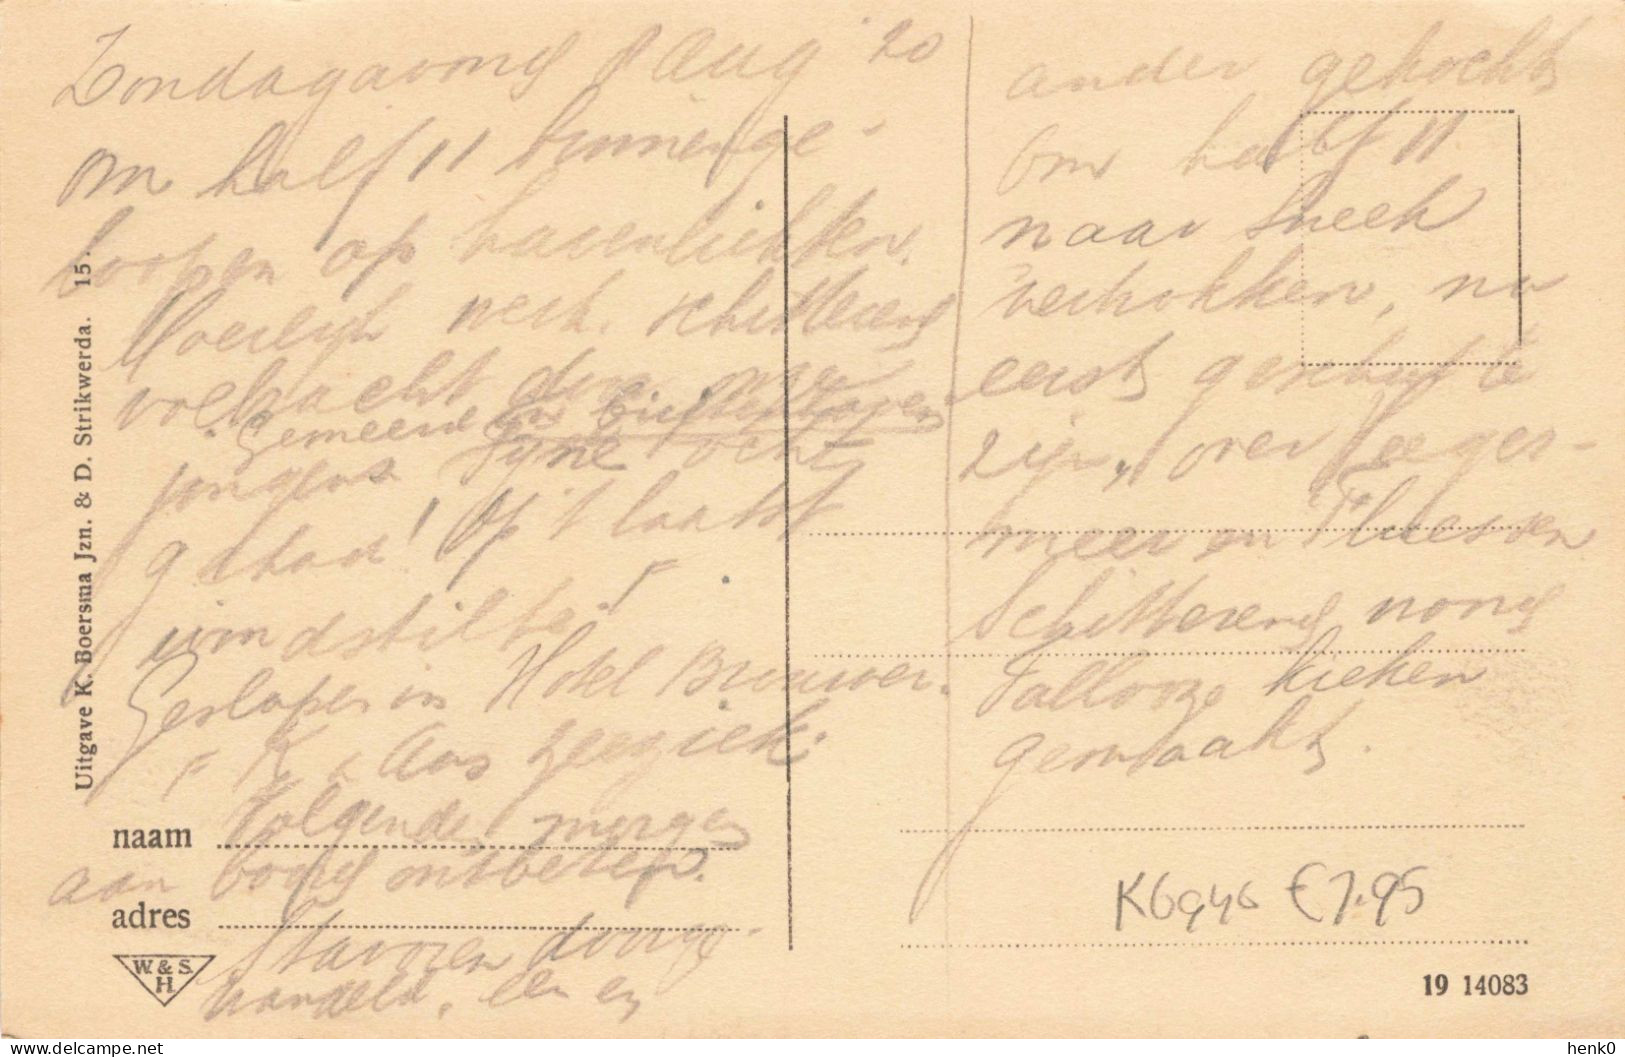 Zondagavond 8 Aug '20
om half 11 binnenge-
loopen op havenlichten.
Moeilijk werk. schitterend
volbracht door onze
Gemeend in
jongens Fijne tocht
gehad! Op 't laatst
windstilte!
Geslapen in Hotel Brouwer.
F K & Aas zeeziek.
Volgende morgen
aan boord ontbeten.
Stavoren doorge-
wandeld. Een en
ander gekocht
Om half 11
naar Sneek
vertrokken, na
eerst geschut te
zijn, over Heeger-
meer en Fluessen
Schitterend rond
Tallooze kieken
gemaakt.
Uitgave K. Boersma Jzn. & D. Strikwerda. 15.
naam
adres
W. & S.
H.
K6946 €7.95
19 14083
delcampe.net
henk0